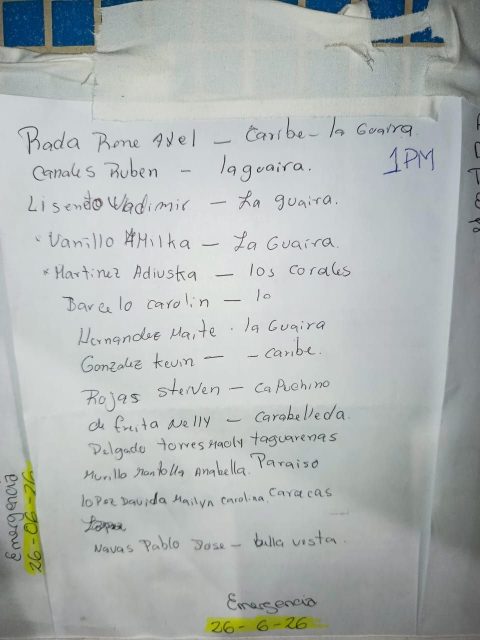 Rada Rone Axel – Caribe – la Guaira
1PM
Canales Ruben – la guaira.
Lisendo Wadimir – La guaira.
Vanillo Milka – La Guaira.
* Martinez Adiuska – los corales
Barcelo carolin – lo
Hernandez Maite . la Guaira
Gonzalez kevin – – caribe.
Rojas steiven – Capuchino
de freita Nelly – Carabelleda.
Delgado torres Maoly taguarenas
Murillo Anabella. Paraiso
lopez Davida Mailyn Carolina. Caracas
Navas Pablo Jose – bella vista.
Emergencia
26-06-26
Emergencia
26-6-26